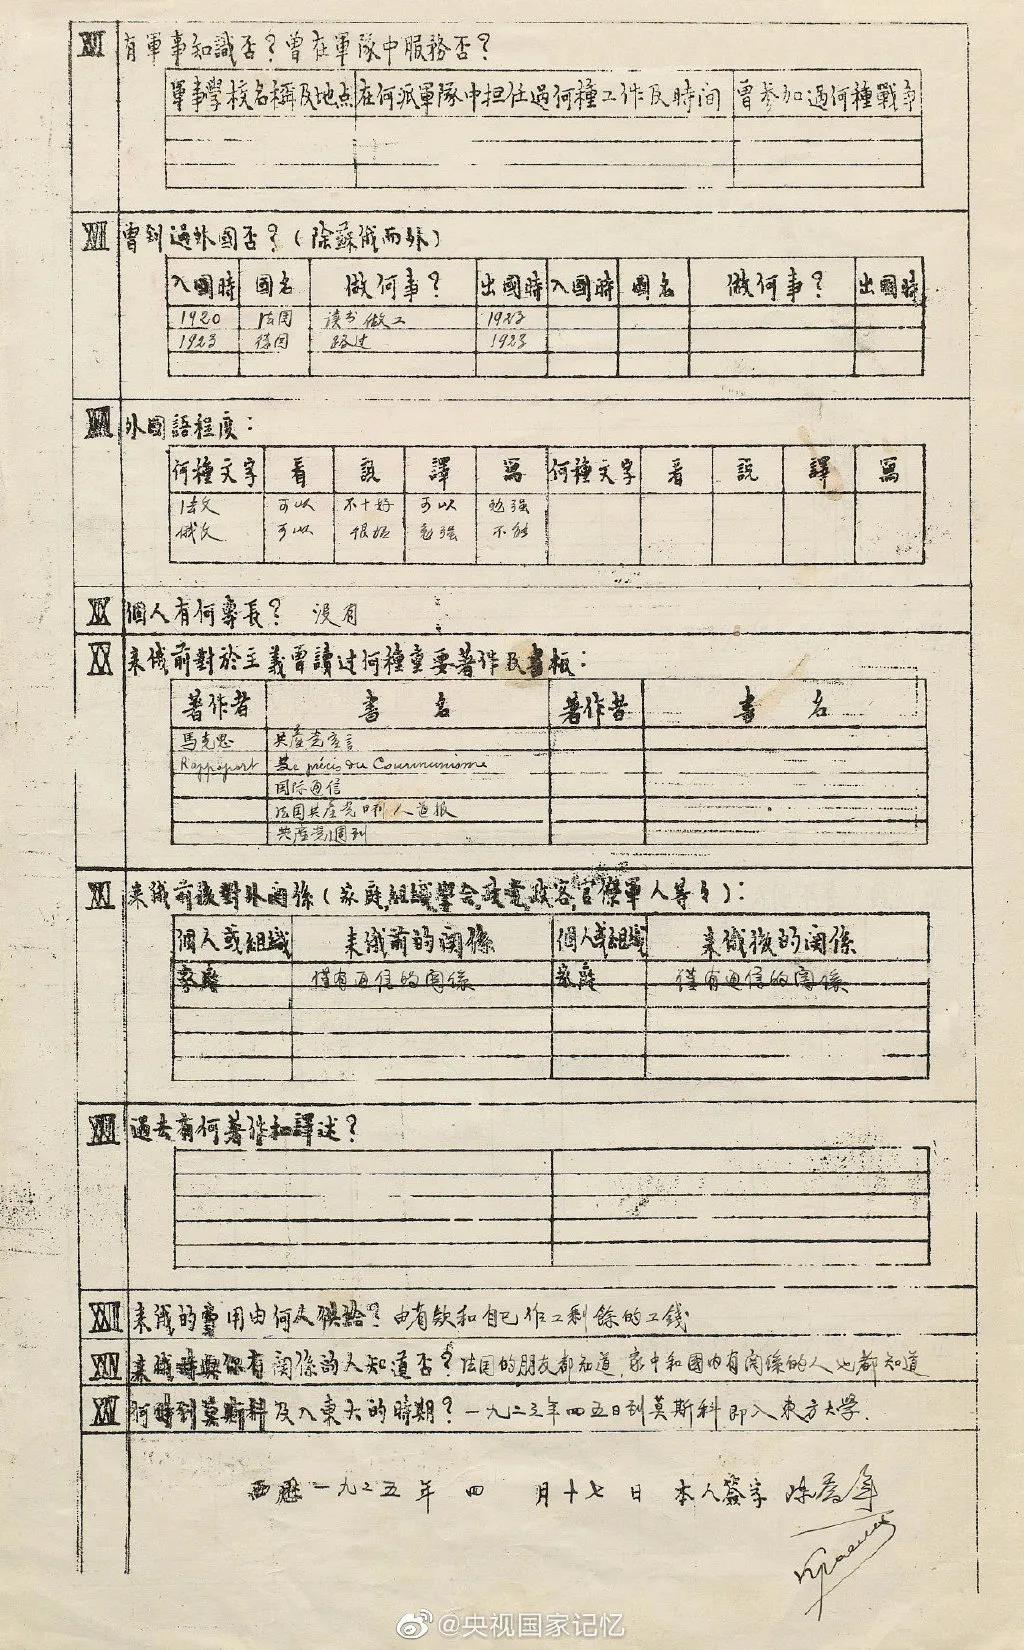 有軍事知識否？曾在軍隊中服務否？
軍事學校名稱及地点 在何派軍隊中担任過何種工作及時間 曾参加過何種戰爭
曾到過外國否？（除蘇俄而外）
入國時 國名 做何事？ 出國時 入國時 國名 做何事？ 出國時
1920 法国 读书做工 1923
1923 德国 路过 1923
外國語程度：
何種文字 看 説 譯 寫 何種文字 看 説 譯 寫
法文 可以 不十好 可以 勉强
俄文 可以 很坏 勉强 不能
XIX 個人有何專長？ 没有
XX 来俄前對於主義曾讀过何種重要著作及書板：
著作者 書名 著作者 書名
馬克思 共産党宣言
Rappoport précis du Communisme
国际通信
法国共産党 人道报
共産党週刊
XXI 来俄前後對外関係（家庭,組織,學会,政党,政客,官僚軍人等々）：
個人或組織 来俄前的関係 個人或組織 来俄後的関係
家庭 僅有通信的関係 家庭 僅有通信的関係
過去有何著作和譯述？
来俄的費用由何處供給？ 由有欵和自己作工剩餘的工錢
来俄時與你有関係的人知道否？ 法国的朋友都知道,家中和國内有関係的人也都知道
何時到莫斯科及入東大的時期？ 一九二三年四五日到莫斯科即入東方大学.
西歷一九二五年 四 月十七日 本人簽字 陈喬年
@央视国家记忆